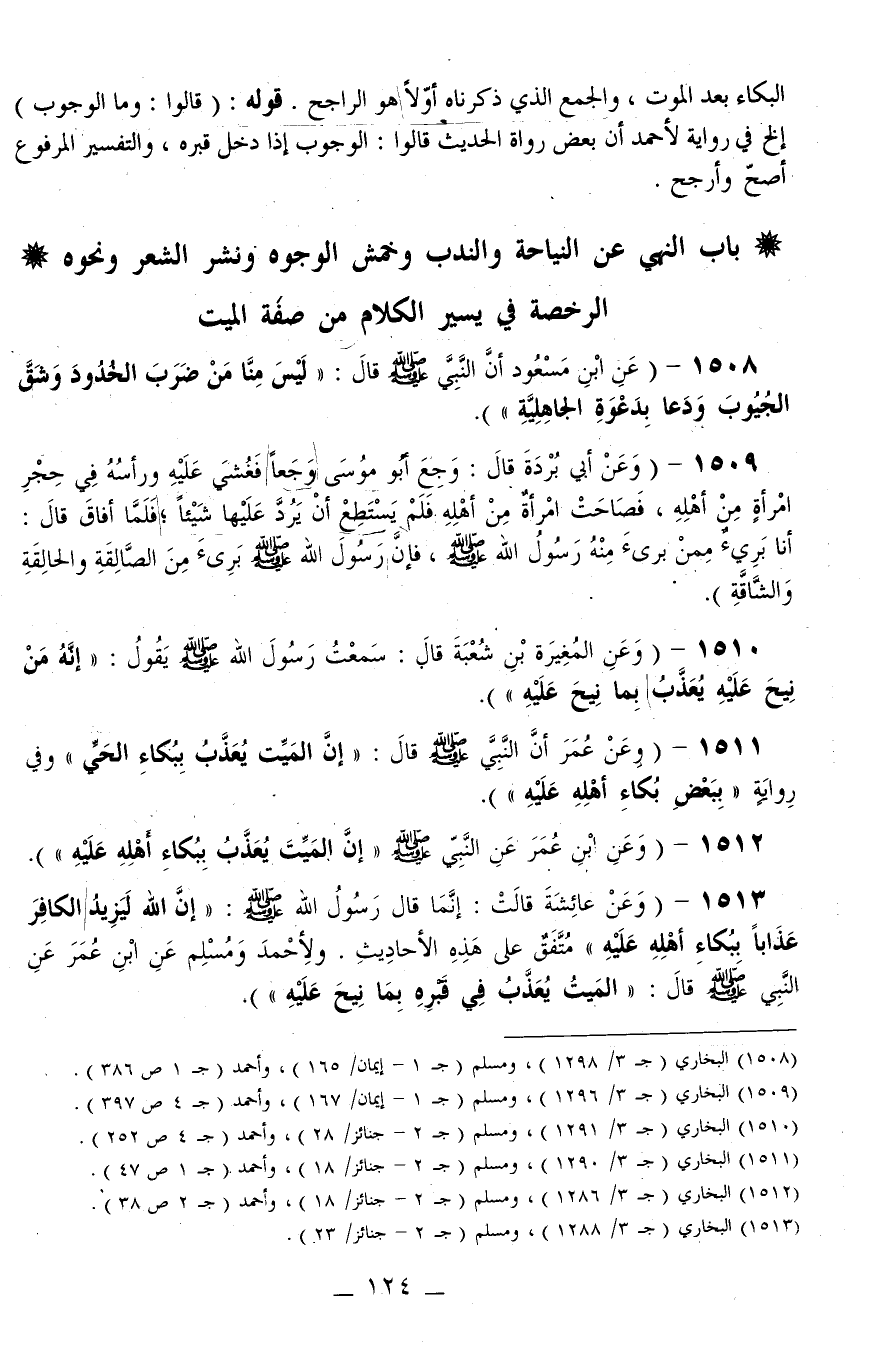 البكاء بعد الموت ، والجمع الذي ذكرناه أوّلاً هو الراجح . قوله : ( قالوا : وما الوجوب )
إلخ في رواية لأحمد أن بعض رواة الحديث قالوا : الوجوب إذا دخل قبره ، والتفسير المرفوع
أصحّ وأرجح .
❋ باب النهي عن النياحة والندب وخمش الوجوه ونشر الشعر ونحوه ❋
الرخصة في يسير الكلام من صفة الميت
١٥٠٨ – ( عَنِ ابْنِ مَسْعُود أنَّ النَّبِيَّ ﷺ قالَ : « لَيْسَ مِنَّا مَنْ ضَرَبَ الخُدُودَ وَشَقَّ
الجُيُوبَ وَدَعا بِدَعْوَةِ الجاهِلِيَّةِ » ).
١٥٠٩ – ( وَعَنْ أبي بُرْدَةَ قالَ : وَجِعَ أَبُو مُوْسَى وَجَعاً فَغُشيَ عَلَيْهِ ورأسُهُ فِي حِجْرِ
امْرأةٍ مِنْ أهْلِهِ ، فَصَاحَتْ امْرأةٌ مِنْ أهْلِهِ فَلَمْ يَسْتَطِعْ أنْ يَرُدَّ عَلَيْها شَيْئاً ؛ فَلَمَّا أفاقَ قالَ :
أنا بَرِيءٌ مِمنْ برىءَ مِنْهُ رَسُولُ الله ﷺ ، فإنَّ رَسُولَ الله ﷺ بَرِىءَ مِنَ الصَّالِقَةِ والحالِقَةِ
وَالشَّاقَّةِ ).
١٥١٠ – ( وَعَنِ المُغِيرَة بْنِ شُعْبَةَ قالَ : سَمعْتُ رَسُولَ الله ﷺ يَقُولُ : « إنَّهُ مَنْ
نِيحَ عَلَيْهِ يُعَذَّبُ بِما نِيحَ عَلَيْهِ » ).
١٥١١ – ( وعَنْ عُمَرَ أنَّ النَّبِيَّ ﷺ قالَ : « إنَّ المَيِّت يُعَذَّبُ بِبُكاءِ الحَيِّ » وفي
رِوايَةٍ « بِبَعْضِ بُكاءِ أهْلِهِ عَلَيْهِ » ).
١٥١٢ – ( وَعَنِ ابْنِ عُمَرَ عَنِ النَّبِيّ ﷺ « إنَّ المَيِّتَ يُعَذَّبُ بِبُكاءِ أَهْلِهِ عَلَيْهِ » ).
١٥١٣ – ( وَعَنْ عائِشَةَ قالَتْ : إنَّمَا قال رَسُولُ الله ﷺ : « إنَّ الله لَيَزِيدُ الكافِرَ
عَذَاباً بِبُكاءِ أهْلِهِ عَلَيْهِ » مُتَّفَقٌ على هَذِهِ الأحاديثِ . ولأِحْمدَ وَمُسْلِم عَنِ ابْنِ عُمَرَ عَنِ
النَّبِي ﷺ قالَ : « المَيتُ يُعَذَّبُ فِي قَبْرِهِ بِمَا نِيحَ عَلَيْهِ » ).
(١٥٠٨) البخاري ( جـ ٣/ ١٢٩٨ ) ، ومسلم ( جـ ١ – إيمان/ ١٦٥ ) ، وأحمد ( جـ ١ ص ٣٨٦ ) .
(١٥٠٩) البخاري ( جـ ٣/ ١٢٩٦ ) ، ومسلم ( جـ ١ – إيمان/ ١٦٧ ) ، وأحمد ( جـ ٤ ص ٣٩٧ ) .
(١٥١٠) البخاري ( جـ ٣/ ١٢٩١ ) ، ومسلم ( جـ ٢ – جنائز/ ٢٨ ) ، وأحمد ( جـ ٤ ص ٢٥٢ ) .
(١٥١١) البخاري ( جـ ٣/ ١٢٩٠ ) ، ومسلم ( جـ ٢ – جنائز/ ١٨ ) ، وأحمد ( جـ ١ ص ٤٧ ) .
(١٥١٢) البخاري ( جـ ٣/ ١٢٨٦ ) ، ومسلم ( جـ ٢ – جنائز/ ١٨ ) ، وأحمد ( جـ ٢ ص ٣٨ ) .
(١٥١٣) البخاري ( جـ ٣/ ١٢٨٨ ) ، ومسلم ( جـ ٢ – جنائز/ ٢٣ ) .
– ١٢٤ –